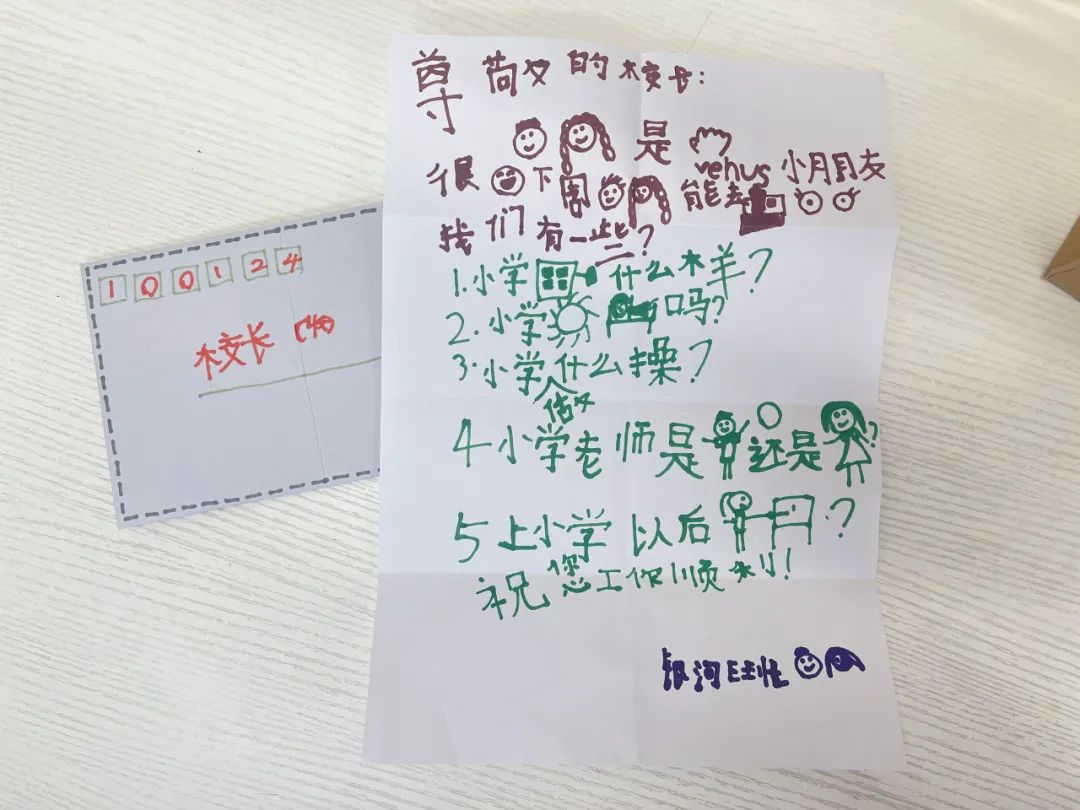 100124
校长 收
尊敬的校长:
是
venus 小朋友
很 下周 能去
我们有一些?
1.小学 什么样?
2.小学 吗?
3.小学做什么操?
4 小学老师是 还是 ?
5 上小学以后 ?
祝您工作顺利!
银河